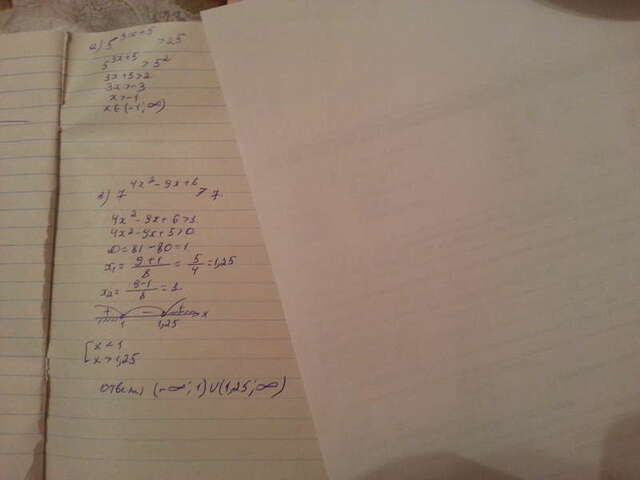 а) 5^(3x+5) > 25
5^(3x+5) > 5²
3x+5>2
3x>-3
x>-1
x∈(-1; ∞)
2) 7^(4x²-9x+6) > 7
4x²-9x+6>1
4x²-9x+5>0
D=81-80=1
x₁= (9+1)/8 = 5/4 =1,25
x₂= (9-1)/8 = 1
+ - + x
1 1,25
[x<1
x>1,25
Ответ: (-∞; 1)∪(1,25; ∞)